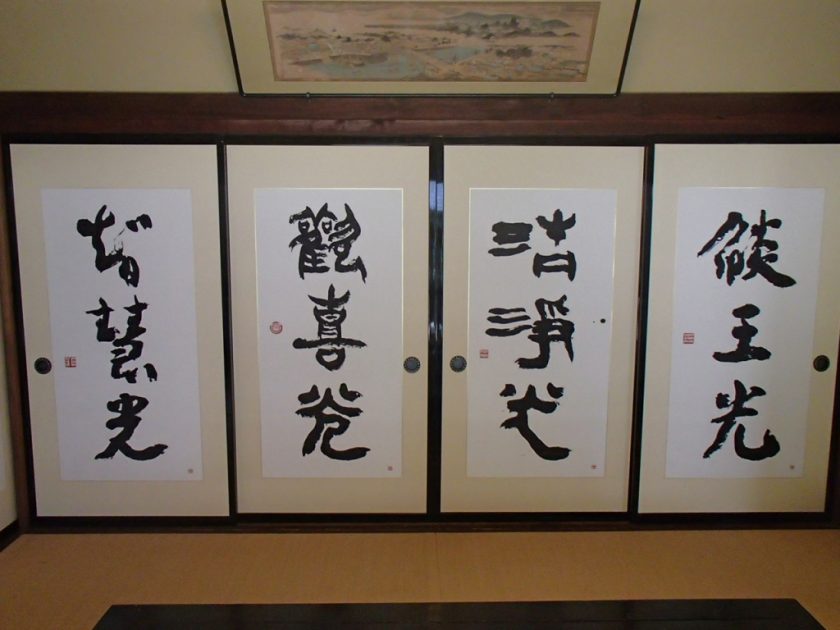 燄王光
清淨光
歡喜光
智慧光